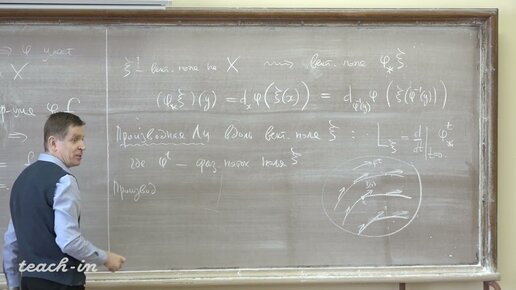 ⇒ φ
X
φ f
ξ – вект. поле на X ⟿ вект. поле φ_* ξ
(φ_* ξ)(y) = d_x φ(ξ(x)) = d_{φ⁻¹(y)} φ(ξ(φ⁻¹(y)))
Производная Ли вдоль вект. поля ξ : L_ξ = d/dt|_{t=0} φ_*^t
где φ^t – фаз. поток поля ξ
Производ
teach-in